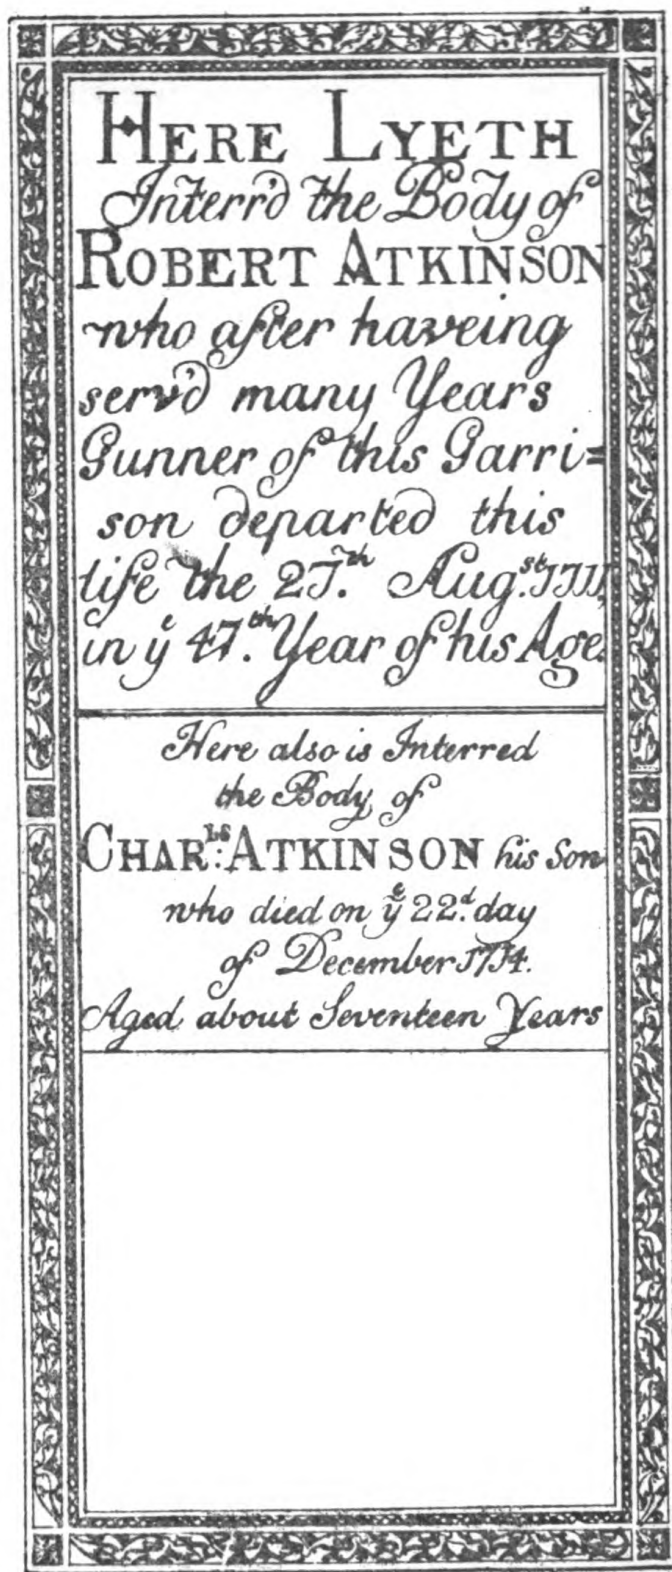 HERE LYETH
Interr'd the Body of
ROBERT ATKINSON
who after haveing
serv'd many Years
Gunner of this Garri=
son departed this
life the 27.th Aug.st 1711,
in ye 47.th Year of his Age.
Here also is Interred
the Body of
CHARls: ATKINSON his Son
who died on ye 22.d day
of December 1714.
Aged about Seventeen Years